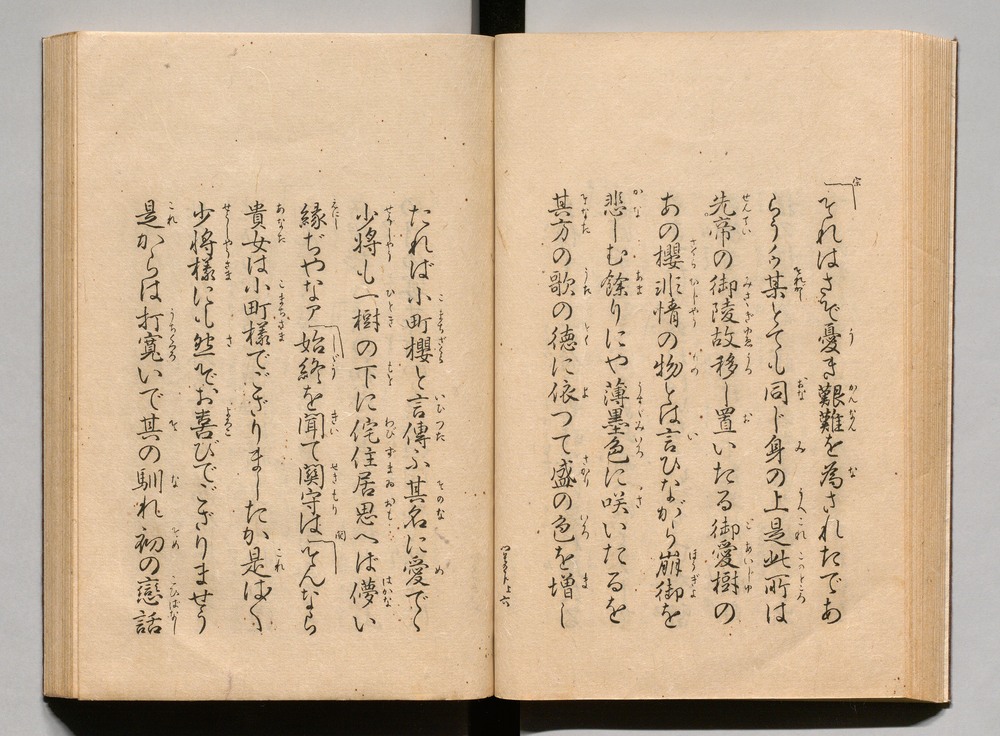 宗
それはさぞ憂き艱難を為されたであ
らうが某とても同じ身の上是此所は
先帝の御陵故移し置いたる御愛樹の
あの櫻非情の物とは言ひながら崩御を
悲しむ餘りにや薄墨色に咲いたるを
其方の歌の徳に依つて盛の色を増し
たれば小町櫻と言傳ふ其名に愛でゝ
少將も一樹の下に侘住居思へば儚い
縁ぢやなア始終を聞て関守は
関
そんなら
貴女は小町樣でござりましたか是は〱
少將樣にも然ぞお喜びでござりませう
是からは打寛いで其の馴れ初の戀話